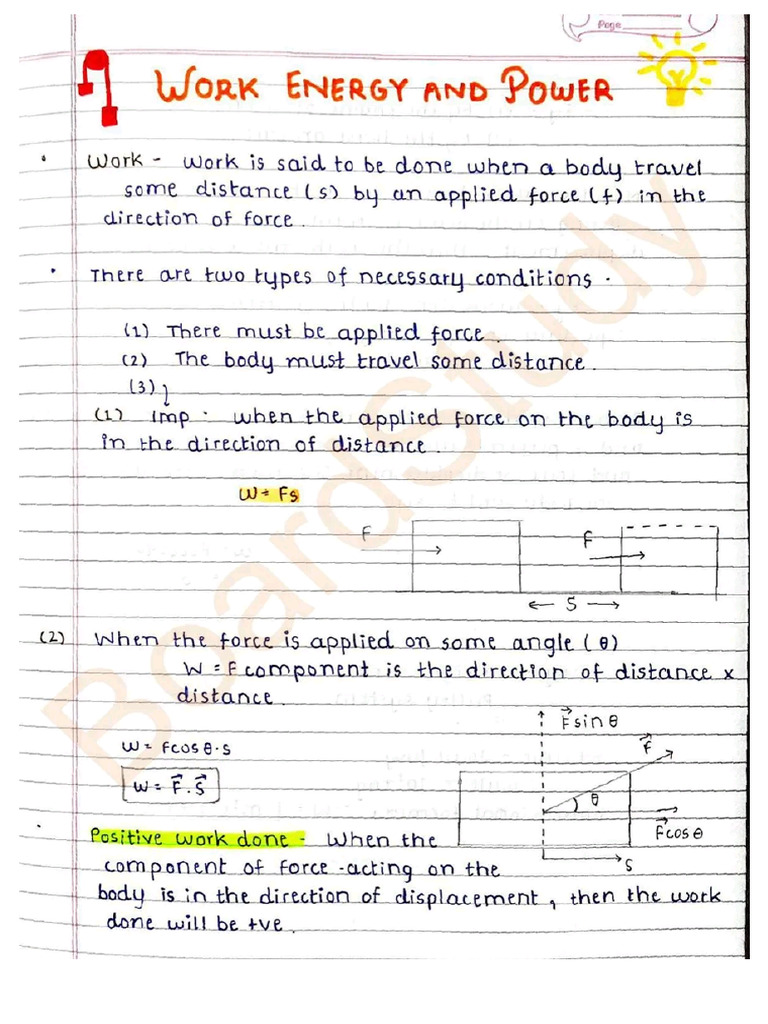 Page
WORK ENERGY AND POWER
• Work - Work is said to be done when a body travel
some distance (s) by an applied force (f) in the
direction of force.
• There are two types of necessary conditions.
(1) There must be applied force.
(2) The body must travel some distance.
(3)
(1) imp. When the applied force on the body is
in the direction of distance.
W = Fs
F F
← S →
(2) When the force is applied on some angle (θ)
W = F component is the direction of distance x
distance.
F⃗ sin θ
W = Fcosθ.s F⃗
W = F⃗.S⃗
θ
F⃗cosθ
• Positive work done - When the
S
component of force -acting on the
body is in the direction of displacement, then the work
done will be +ve.
BoardStudy